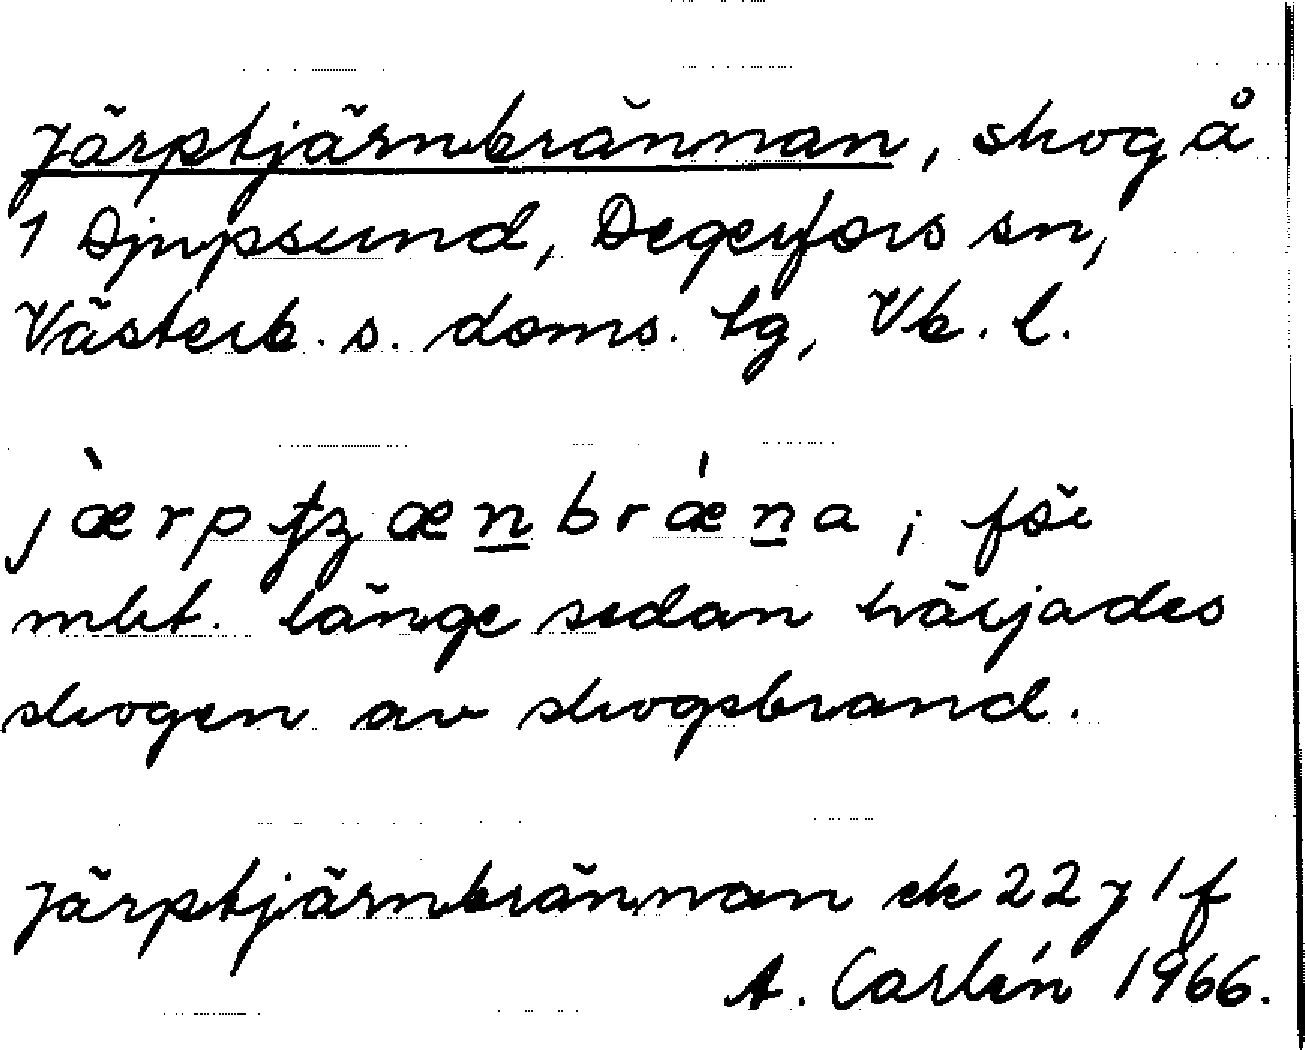 Järptjärnbrännan, skog å
1 Djupsund, Degerfors sn,
Västerb. s. doms. lg, Vb. l.
jæ̀rptʒæn̲brǽn̲a ; föê
mkt. länge sedan härjades
skogen av skogsbrand.
Järptjärnbrännan ek 22 J 1 f
A. Carlén 1966.